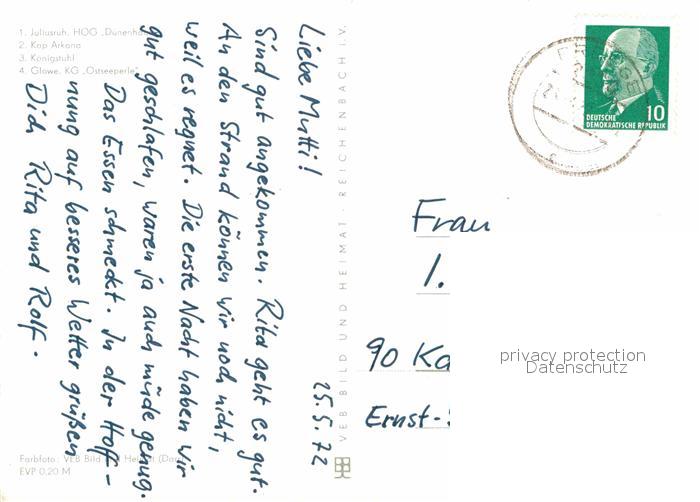 1. Juliusruh, HOG „Dünenhaus“
2. Kap Arkona
3. Königstuhl
4. Glowe, KG „Ostseeperle“
25.5.72
Liebe Mutti!
Sind gut angekommen. Rita geht es gut.
An den Strand können wir noch nicht,
weil es regnet. Die erste Nacht haben wir
gut geschlafen, waren ja auch müde genug.
Das Essen schmeckt. In der Hoff-
nung auf besseres Wetter grüßen
Dich Rita und Rolf.
Farbfoto: VEB Bild und Heimat
EVP 0,20 M
VEB BILD UND HEIMAT · REICHENBACH I. V.
10
DEUTSCHE
DEMOKRATISCHE REPUBLIK
Frau
1.
90 Ka
Ernst-
privacy protection
Datenschutz